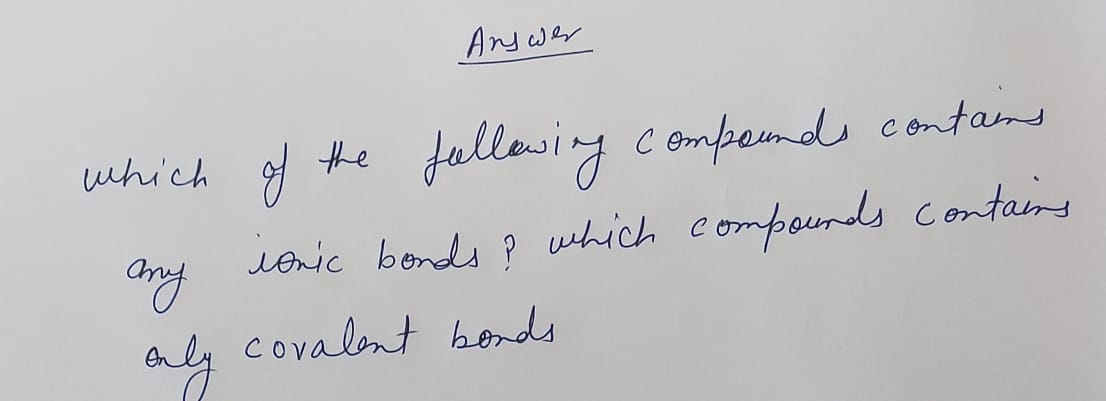 Answer
which of the following compounds contains
any ionic bonds? which compounds contains
only covalent bonds